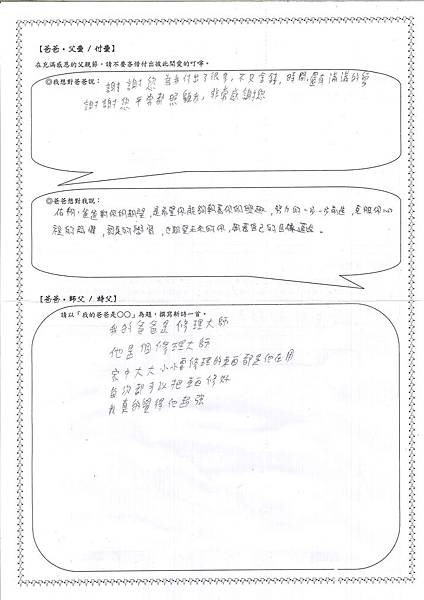 【爸爸‧父愛/付愛】
在充滿感恩的父親節,請不要吝惜付出彼此間愛的叮嚀。
◎我想對爸爸說:
謝謝您 為我付出了很多,不只金錢,時間,還有滿滿的愛
謝謝您平常都照顧我,非常感謝您
◎爸爸想對我說:
爸爸對你的期望,是希望你能夠朝著你的興趣,努力的一步一步前進,
的學習,也期望未來的你,朝著自己的目標邁進。
【爸爸‧師父/詩父】
請以「我的爸爸是○○」為題,撰寫新詩一首。
我的爸爸是修理大師
他是個修理大師
家中大大小小要修理的東西都是他在用
每次都可以把東西修好
我真的覺得他超強